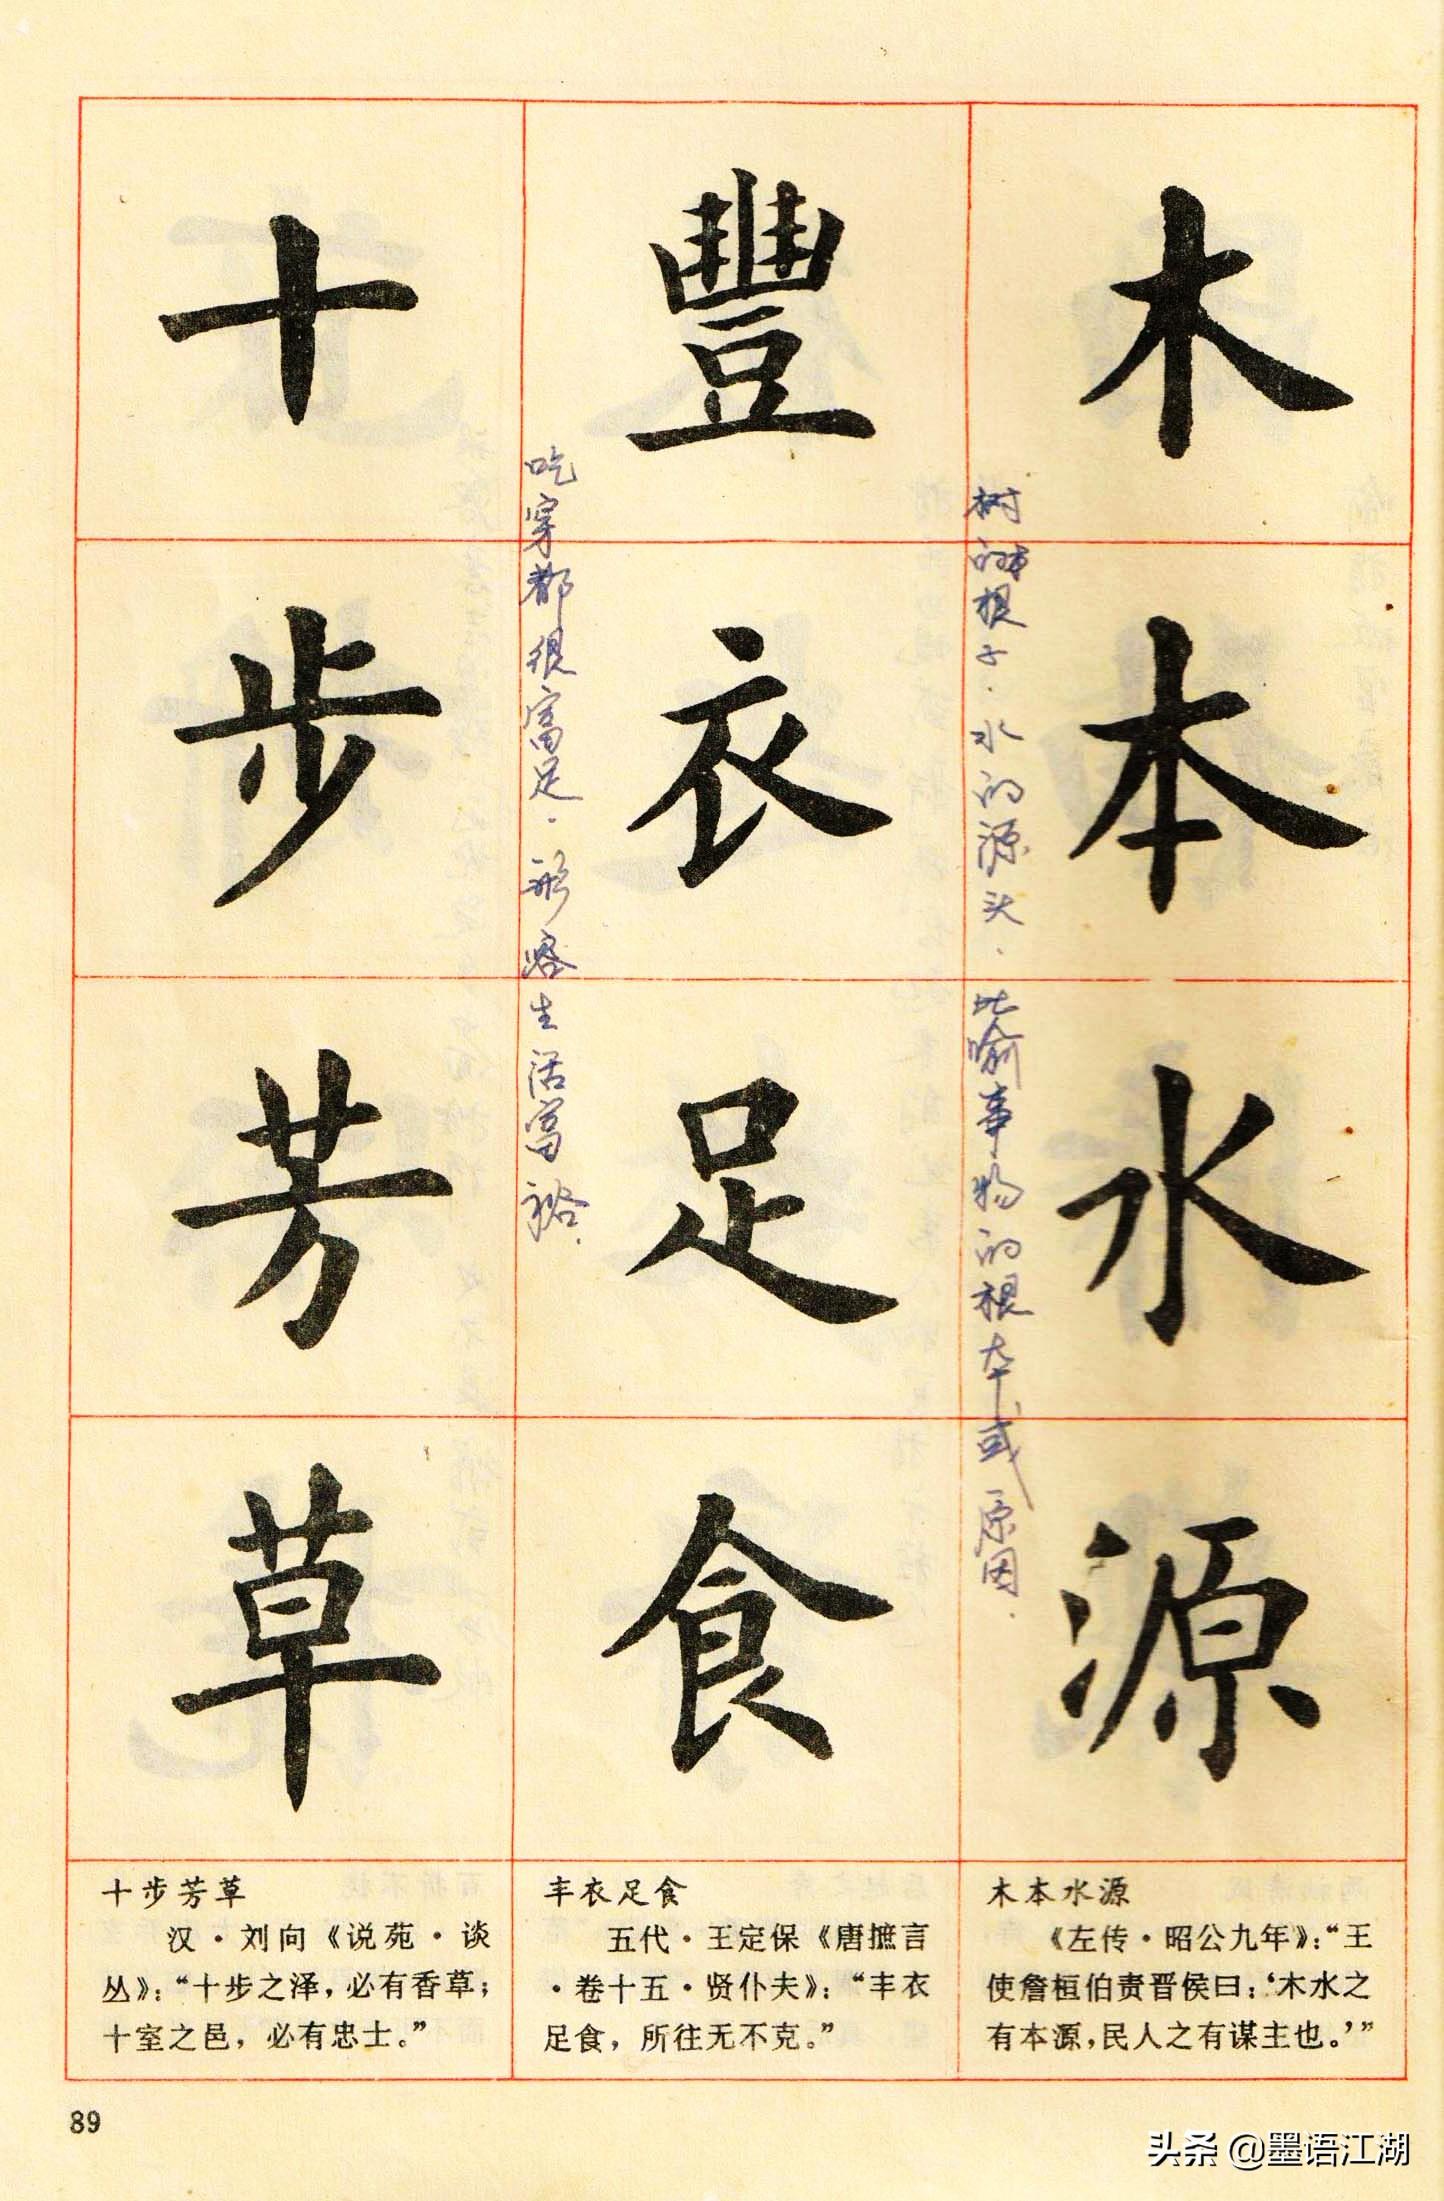 木本水源
豐衣足食
十步芳草
树的根子.水的源头.比喻事物的根本或原因.
吃穿都很富足.形容生活富裕.
十步芳草
汉·刘向《说苑·谈
丛》：“十步之泽，必有香草；
十室之邑，必有忠士。”
丰衣足食
五代·王定保《唐摭言
·卷十五·贤仆夫》：“丰衣
足食，所往无不克。”
木本水源
《左传·昭公九年》：“王
使詹桓伯责晋侯曰：‘木水之
有本源，民人之有谋主也。’”
89
头条 @墨语江湖